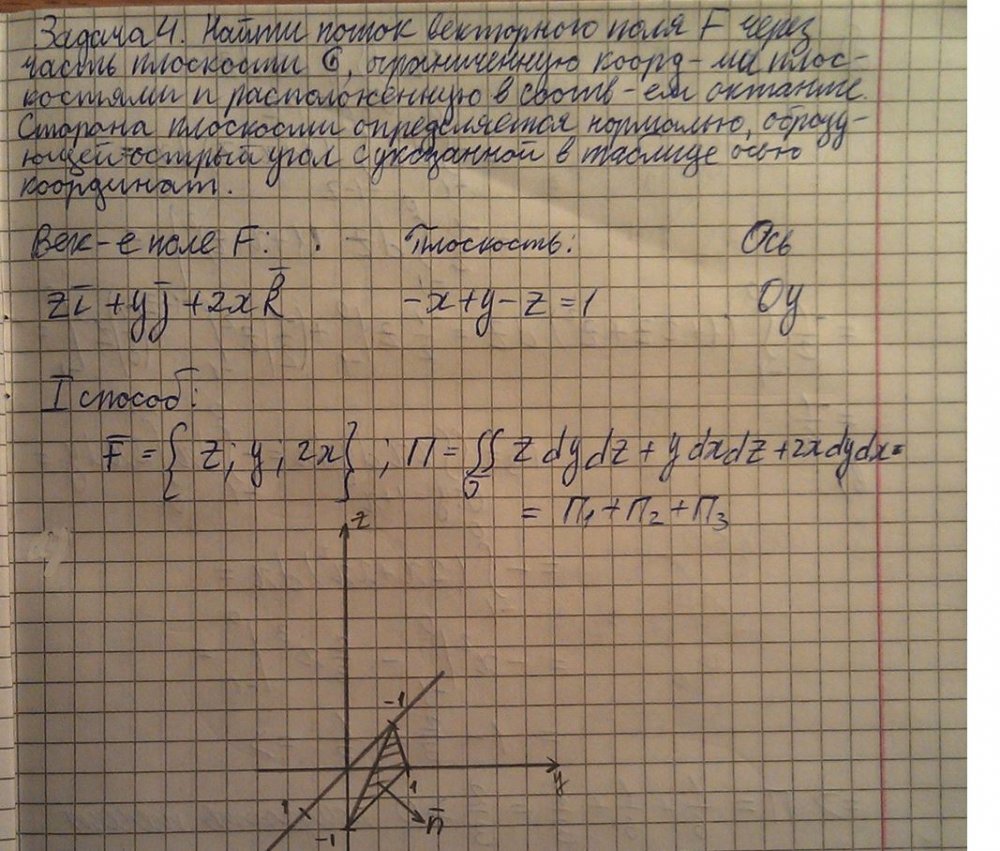 Задача 4. Найти поток векторного поля F через
часть плоскости G, ограниченную коорд-ми плос-
костями и расположенную в соотв-ем октанте.
Сторона плоскости определяется нормалью, образу-
ющей острый угол с указанной в таблице осью
координат.
Век-е поле F: Плоскость: Ось
zi̅ + yj̅ + 2xk̅ -x+y-z=1 Oy
I способ:
F̅ = { z; y; 2x } ; П = ∬ z dydz + y dxdz + 2x dydx =
σ
= П₁ + П₂ + П₃
z
-1
y
1
1
-1
n̅